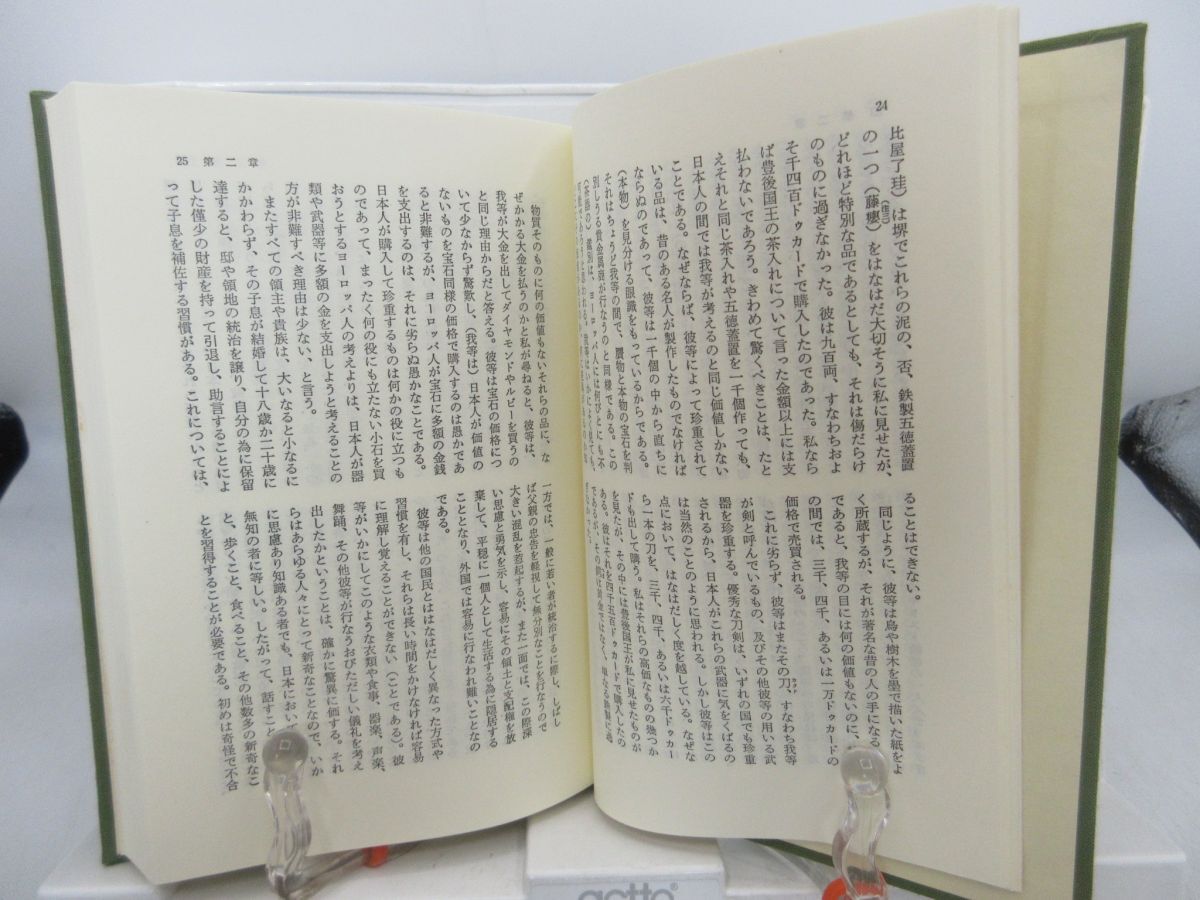 24
比屋了珪)は堺でこれらの泥の、否、鉄製五徳蓋置
の一つ(藤瓔)をはなはだ大切そうに私に見せたが、
どれほど特別な品であるとしても、それは傷だらけ
のものに過ぎなかった。彼は九百両、すなわちおよ
そ千四百ドゥカードで購入したのであった。私なら
ば豊後国王の茶入れについて言った金額以上には支
払わないであろう。きわめて驚くべきことは、たと
えそれと同じ茶入れや五徳蓋置を一千個作っても、
日本人の間では我等が考えるのと同じ価値しかない
ことである。なぜならば、彼等によって珍重されて
いる品は、昔のある名人が製作したものでなければ
ならぬのであって、彼等は一千個の中から直ちに
(本物)を見分ける眼識をもっているからである。
それはちょうど我等の間で、贋物と本物の宝石を判
別しうる貴金属商が行なうのと同様である。この
ることはできない。
同じように、彼等は鳥や樹木を墨で描いた紙をよ
く所蔵するが、それが著名な昔の人の手になる
であると、我等の目には何の価値もないのに、
の間では、三千、四千、あるいは一万ドゥカードの
価格で売買される。
これに劣らず、彼等はまたその刀、すなわち我等
が剣と呼んでいるもの、及びその他彼等の用いる武
器を珍重する。優秀な刀剣は、いずれの国でも珍重
されるから、日本人がこれらの武器に気をくばるの
は当然のことのように思われる。しかし彼等はこの
点において、はなはだしく度を越している。なぜな
ら一本の刀を、三千、四千、あるいは六千ドゥカー
ドも出して購う。私はそれらの高価なものの幾つか
を見たが、その中には豊後国王が私に見せたものが
ある。彼はそれを四千五百ドゥカードで購入したの
であるが、その
25 第二章
物質そのものに何の価値もないそれらの品に、な
ぜかかる大金を払うのかと私が尋ねると、彼等は、
我等が大金を出してダイヤモンドやルビーを買うの
と同じ理由からだと答える。彼等は宝石の価格につ
いて少なからず驚歎し、(我等は)日本人が価値の
ないものを宝石同様の価格で購入するのは愚かであ
ると非難するが、ヨーロッパ人が宝石に多額の金銭
を支出するのは、それに劣らぬ愚かなことである。
日本人が購入して珍重するものは何かの役に立つも
のであって、まったく何の役にも立たない小石を買
おうとするヨーロッパ人の考えよりは、日本人が器
類や武器等に多額の金を支出しようと考えることの
方が非難すべき理由は少ない、と言う。
またすべての領主や貴族は、大いなると小なるに
かかわらず、その子息が結婚して十八歳か二十歳に
達すると、邸や領地の統治を譲り、自分の為に保留
した僅少の財産を持って引退し、助言することによ
って子息を補佐する習慣がある。これについては、
一方では、一般に若い者が統治するに際し、しばし
ば父親の忠告を軽視して無分別なことを行なうので
大きい混乱を惹起するが、また一面では、この際深
い思慮と勇気を示し、容易にその領土と支配権を放
棄して、平穏に一個人として生活する為に隠居する
こととなり、外国では容易に行なわれ難いことなの
である。
彼等は他の国民とははなはだしく異なった方式や
習慣を有し、それらは長い時間をかけなければ容易
に理解し覚えることができない(ことである)。彼
等がいかにしてこのような衣類や食事、器楽、声楽、
舞踊、その他彼等が行なうおびただしい儀礼を考え
出したかということは、確かに驚異に価する。それ
らはあらゆる人々にとって新奇なことなので、いか
に思慮あり知識ある者でも、日本におい
無知の者に等しい。したがって、話すこと
と、歩くこと、食べること、その他数多の新奇なこ
とを習得することが必要である。初めは奇怪で不合
actto